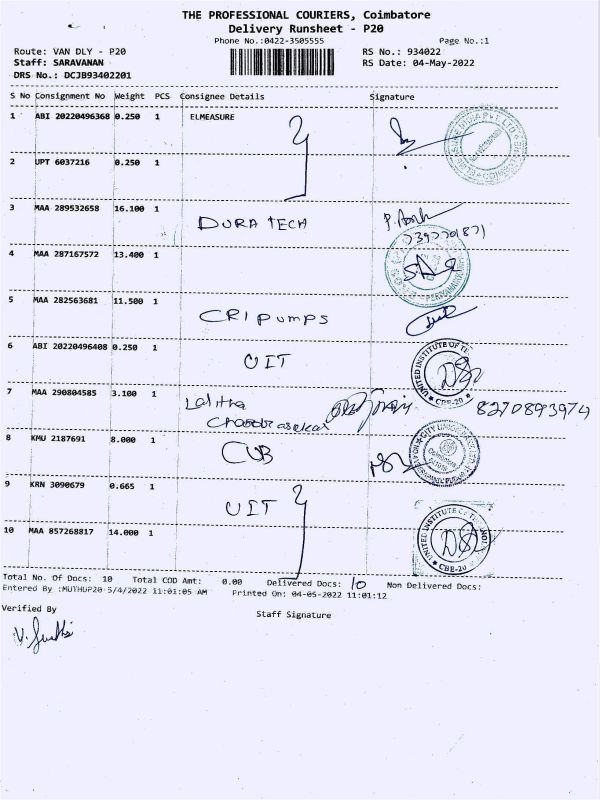 THE PROFESSIONAL COURIERS, Coimbatore
Delivery Runsheet - P20
Phone No.:0422-3505555 Page No.:1
Route: VAN DLY - P20 RS No.: 934022
Staff: SARAVANAN RS Date: 04-May-2022
DRS No.: DCJB93402201
S No Consignment No Weight PCS Consignee Details Signature
1 ABI 20220496368 0.250 1 ELMEASURE
2 UPT 6037216 0.250 1
3 MAA 289532658 16.100 1 DURA TECH
4 MAA 287167572 13.400 1
5 MAA 282563681 11.500 1 CRI PUMPS
6 ABI 20220496408 0.250 1 UIT
UNITED INSTITUTE OF
CBE-20
7 MAA 290804585 3.100 1 Lalitha
Chandrasekar 8270893974
8 KMU 2187691 8.000 1 CUB
9 KRN 3090679 0.665 1 UIT
10 MAA 857268817 14.000 1
UNITED INSTITUTE OF
CBE-20
Total No. Of Docs: 10 Total COD Amt: 0.00 Delivered Docs: 10 Non Delivered Docs:
Entered By :MUTHUP20 5/4/2022 11:01:05 AM Printed On: 04-05-2022 11:01:12
Verified By Staff Signature